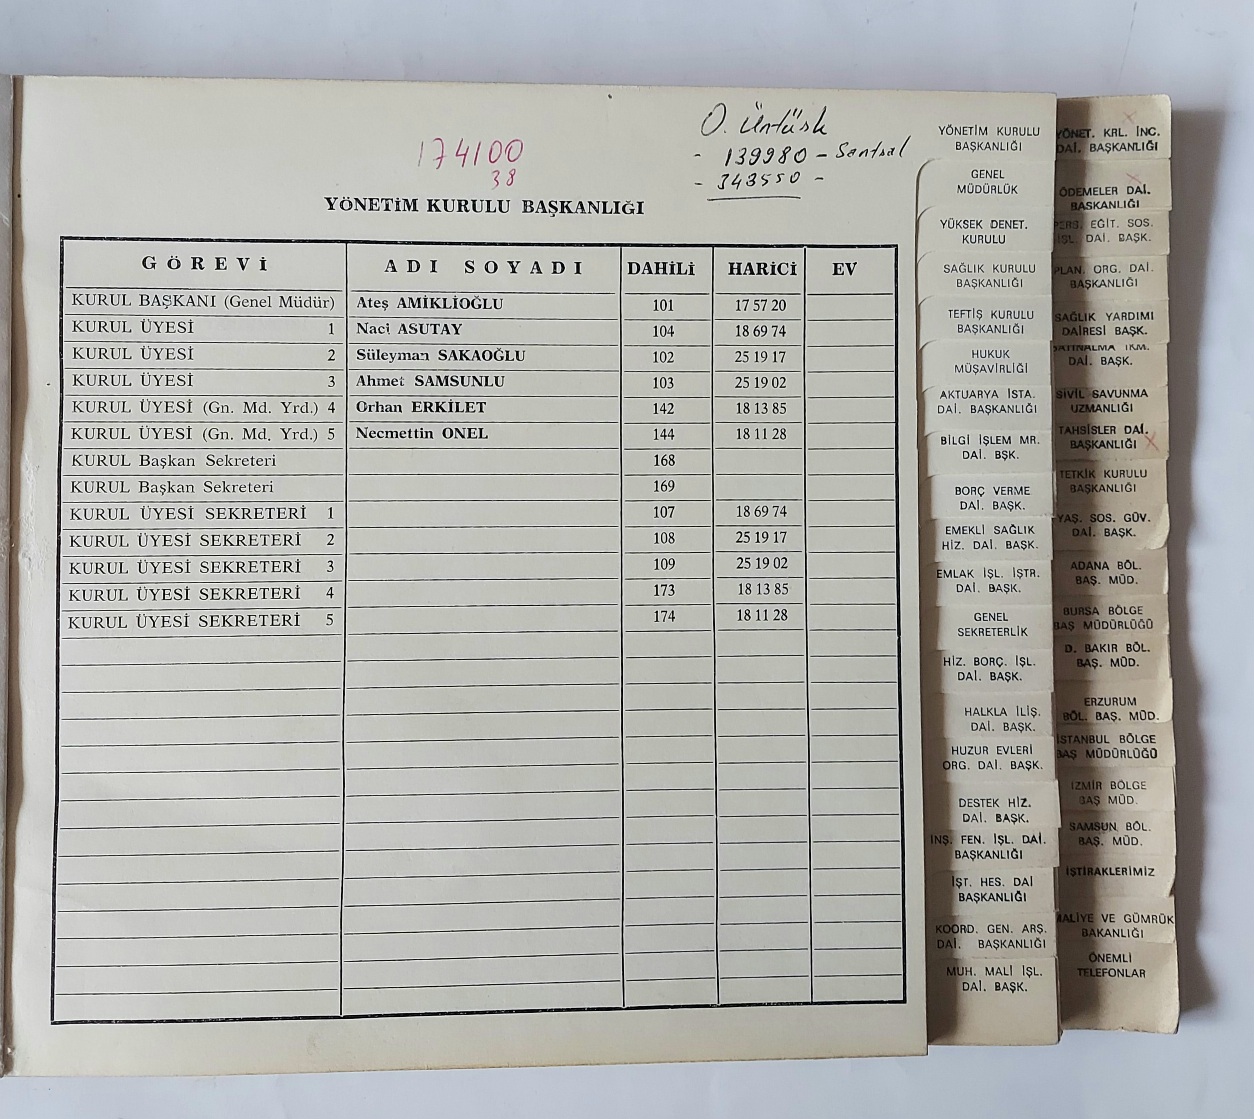 174100
38
O. Üntürk
- 139980 - Santral
- 343550 -
YÖNETİM KURULU BAŞKANLIĞI
GÖREVİ ADI SOYADI DAHİLİ HARİCİ EV
KURUL BAŞKANI (Genel Müdür) Ateş AMİKLİOĞLU 101 17 57 20
KURUL ÜYESİ 1 Naci ASUTAY 104 18 69 74
KURUL ÜYESİ 2 Süleyman SAKAOĞLU 102 25 19 17
KURUL ÜYESİ 3 Ahmet SAMSUNLU 103 25 19 02
KURUL ÜYESİ (Gn. Md. Yrd.) 4 Orhan ERKİLET 142 18 13 85
KURUL ÜYESİ (Gn. Md. Yrd.) 5 Necmettin ONEL 144 18 11 28
KURUL Başkan Sekreteri 168
KURUL Başkan Sekreteri 169
KURUL ÜYESİ SEKRETERİ 1 107 18 69 74
KURUL ÜYESİ SEKRETERİ 2 108 25 19 17
KURUL ÜYESİ SEKRETERİ 3 109 25 19 02
KURUL ÜYESİ SEKRETERİ 4 173 18 13 85
KURUL ÜYESİ SEKRETERİ 5 174 18 11 28
YÖNETİM KURULU
BAŞKANLIĞI
GENEL
MÜDÜRLÜK
YÜKSEK DENET.
KURULU
SAĞLIK KURULU
BAŞKANLIĞI
TEFTİŞ KURULU
BAŞKANLIĞI
HUKUK
MÜŞAVİRLİĞİ
AKTUARYA İSTA.
DAİ. BAŞKANLIĞI
BİLGİ İŞLEM MR.
DAİ. BŞK.
BORÇ VERME
DAİ. BAŞK.
EMEKLİ SAĞLIK
HİZ. DAİ. BAŞK.
EMLAK İŞL. İŞTR.
DAİ. BAŞK.
GENEL
SEKRETERLİK
HİZ. BORÇ. İŞL.
DAİ. BAŞK.
HALKLA İLİŞ.
DAİ. BAŞK.
HUZUR EVLERİ
ORG. DAİ. BAŞK.
DESTEK HİZ.
DAİ. BAŞK.
İNŞ. FEN. İŞL. DAİ.
BAŞKANLIĞI
İŞT. HES. DAİ
BAŞKANLIĞI
KOORD. GEN. ARŞ.
DAİ. BAŞKANLIĞI
MUH. MALİ İŞL.
DAİ. BAŞK.
YÖNET. KRL. İNC.
DAİ. BAŞKANLIĞI
ÖDEMELER DAİ.
BAŞKANLIĞI
PERS. EĞİT. SOS.
İŞL. DAİ. BAŞK.
PLAN. ORG. DAİ.
BAŞKANLIĞI
SAĞLIK YARDIMI
DAİRESİ BAŞK.
SATINALMA İKM.
DAİ. BAŞK.
SİVİL SAVUNMA
UZMANLIĞI
TAHSİSLER DAİ.
BAŞKANLIĞI
TETKİK KURULU
BAŞKANLIĞI
YAŞ. SOS. GÜV.
DAİ. BAŞK.
ADANA BÖL.
BAŞ. MÜD.
BURSA BÖLGE
BAŞ MÜDÜRLÜĞÜ
D. BAKIR BÖL.
BAŞ. MÜD.
ERZURUM
BÖL. BAŞ. MÜD.
İSTANBUL BÖLGE
BAŞ MÜDÜRLÜĞÜ
İZMİR BÖLGE
BAŞ MÜD.
SAMSUN BÖL.
BAŞ. MÜD.
İŞTİRAKLERİMİZ
MALİYE VE GÜMRÜK
BAKANLIĞI
ÖNEMLİ
TELEFONLAR